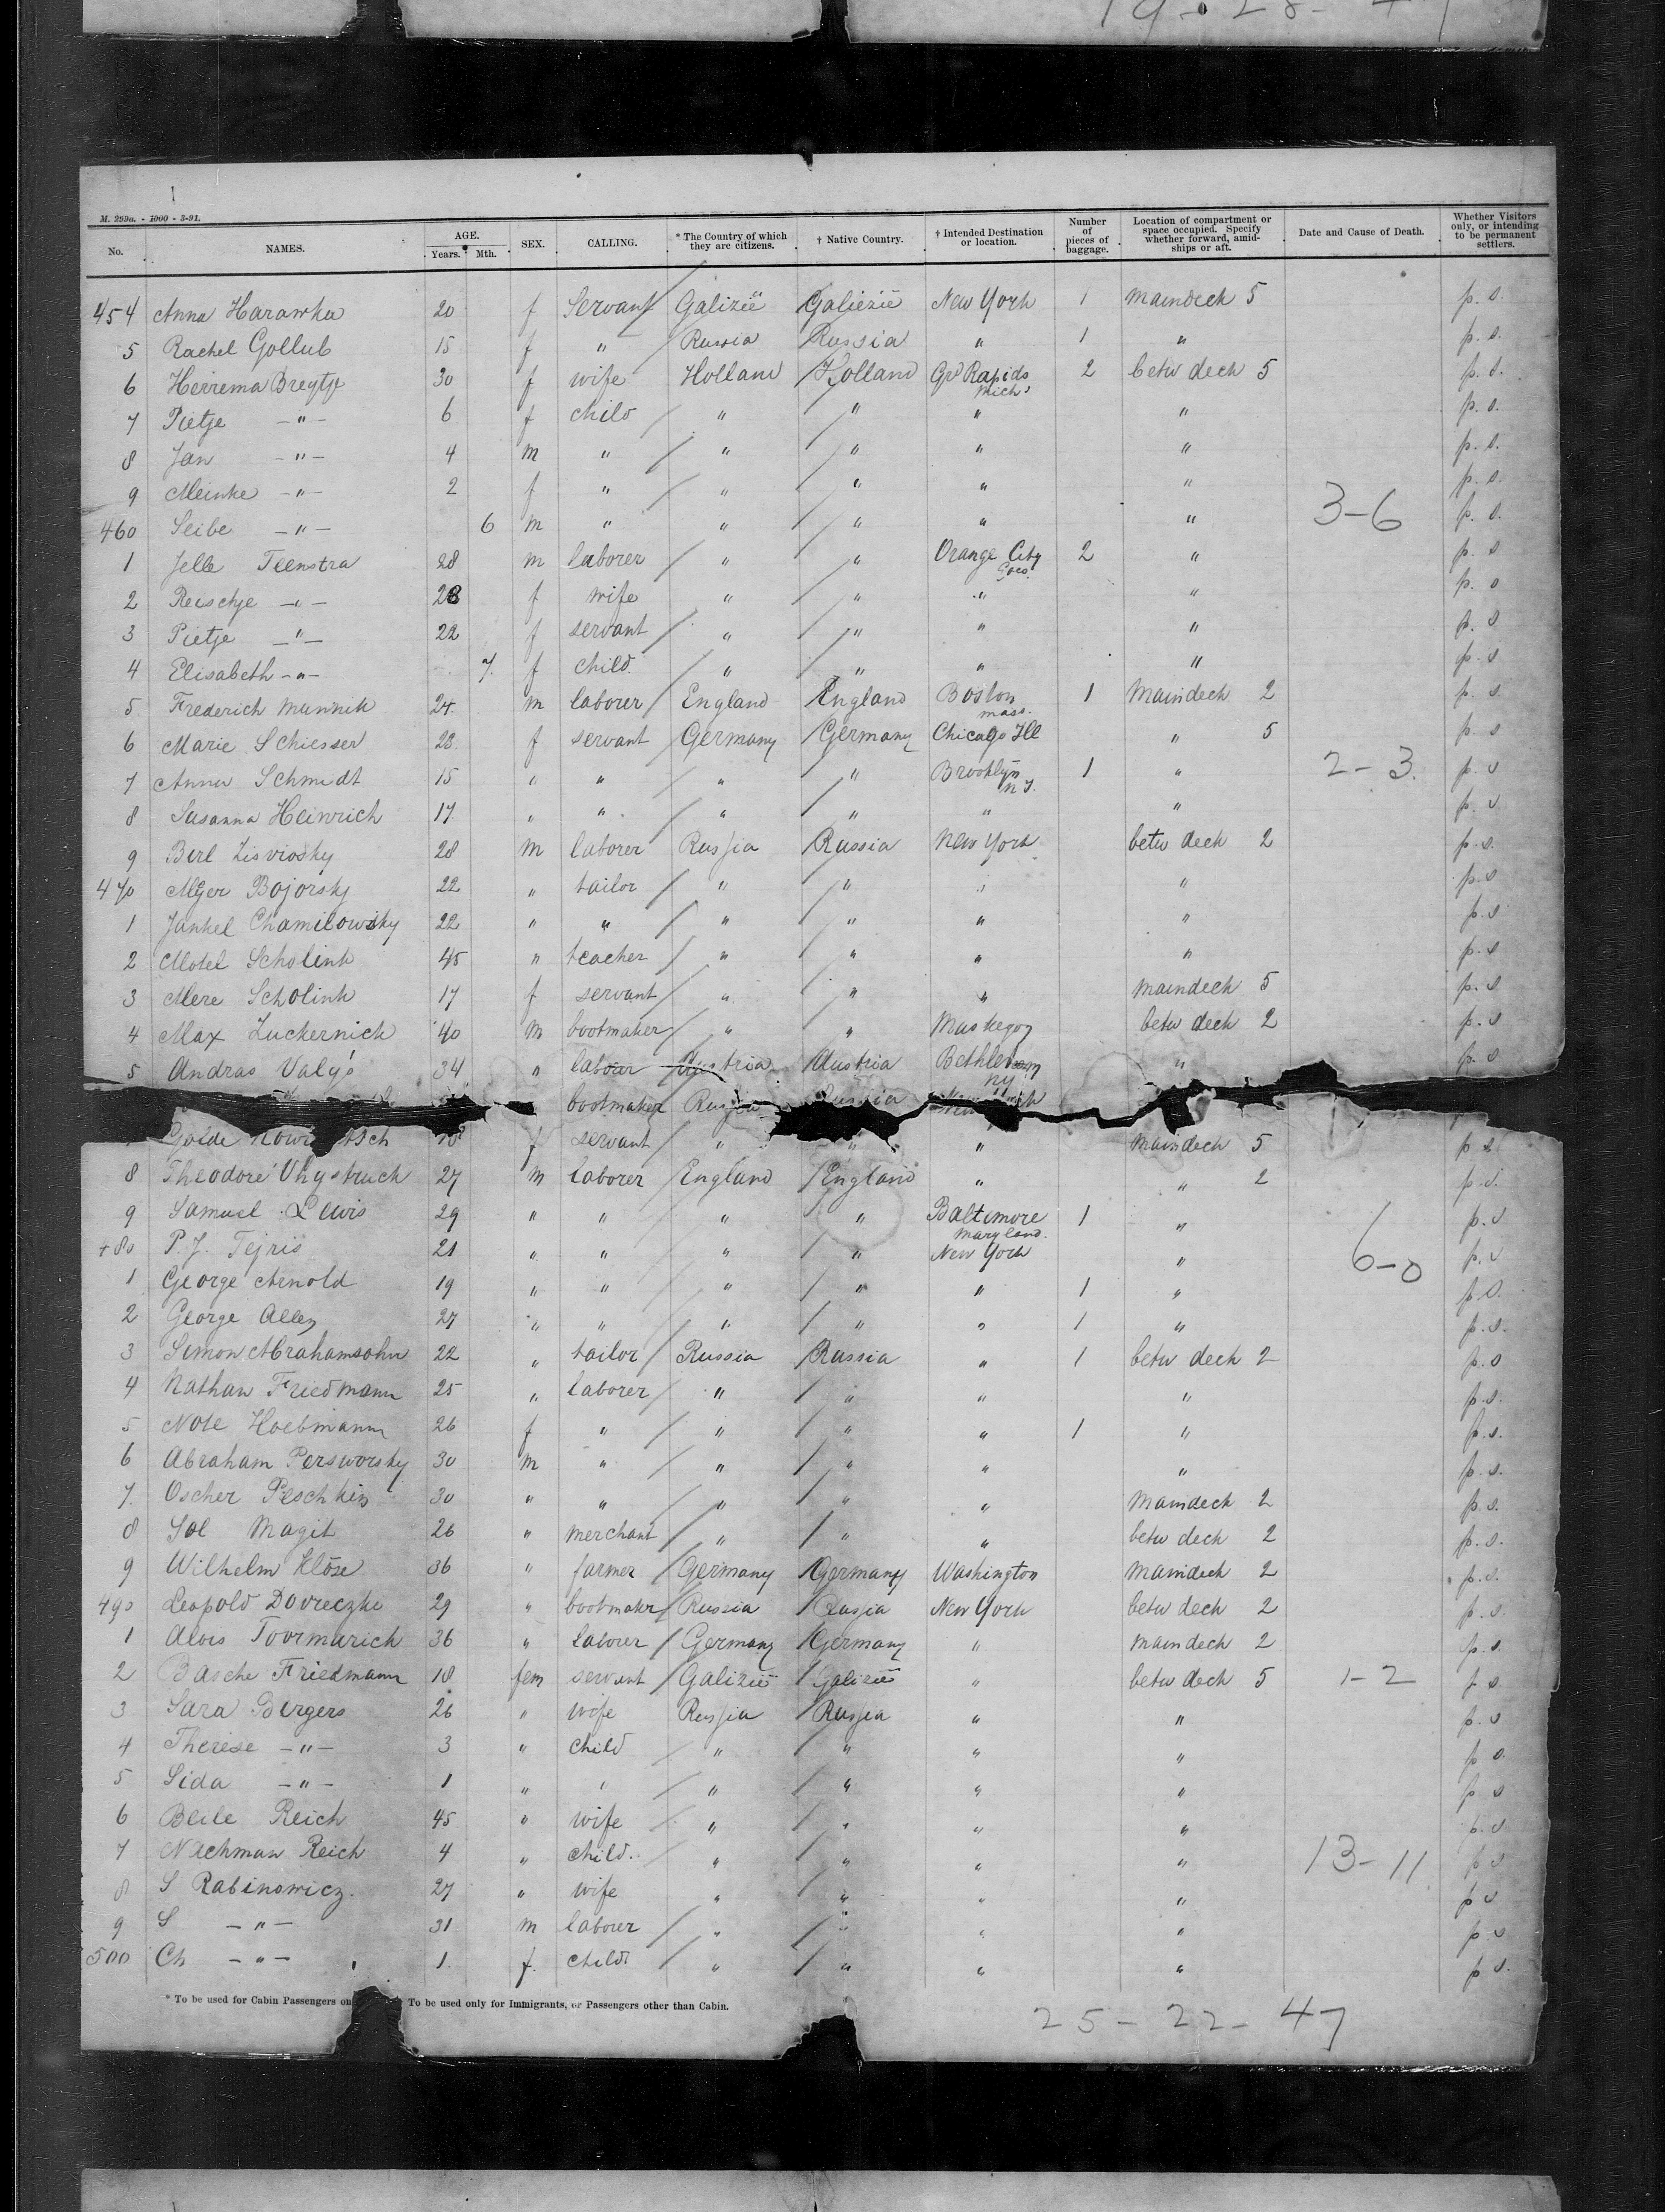 19-28-47
M. 299a. - 1000 - 3-91.
No. NAMES. AGE. Years. Mth. SEX. CALLING. * The Country of which they are citizens. † Native Country. † Intended Destination or location. Number of pieces of baggage. Location of compartment or space occupied. Specify whether forward, amidships or aft. Date and Cause of Death. Whether Visitors only, or intending to be permanent settlers.
454 Anna Harawka 20 f Servant Galizië Galiezië New York 1 Maindeck 5 p. s.
5 Rachel Gollub 15 f " Russia Russia " 1 " p. s.
6 Heirema Breytje 30 f wife Holland Holland Gd Rapids Mich 2 betw deck 5 p. s.
7 Pietje -"- 6 f child " " " " p. s.
8 Jan -"- 4 m " " " " " p. s.
9 Meinke -"- 2 f " " " " " p. s.
460 Seibe -"- 6 m " " " " " 3-6 p. s.
1 Jelle Teenstra 28 m laborer " " Orange City 2 " p. s
2 -"- 28 f wife " " " " p. s
3 Pietje -"- 22 f servant " " " " p. s
4 Elisabeth -"- 7. f child " " " " p. s
5 Frederich Munnik 24 m laborer England England Boston mass. 1 Maindeck 2 p. s.
6 Marie Schiesser 23 f servant Germany Germany Chicago Ill " 5 p. s
7 Anna Schmidt 15 " " " " Brooklyn N Y. 1 " 2-3. p. s
8 Susanna Heinrich 17 " " " " " " p. s.
9 Berl Lisviosky 28 m laborer Russia Russia New York betw deck 2 p. s.
470 Meyer Bojorsky 22 " tailor " " " " p. s
1 Jankel Chamilowsky 22 " " " " " " p. s
2 Motel Scholink 45 " teacher " " " " p. s
3 Mere Scholink 17 f servant " " " maindeck 5 p. s
4 Max Zuckernick 40 m bootmaker " " Muskegon betw deck 2 p. s
5 Andras Valys 34 " labour Austria Austria Bethlehem " p. s
bootmaker Russia Russia New
Golde 18 f servant " " " Maindeck 5 p s
8 Theodore 27 m laborer England England " " 2 p. s.
9 Samuel Lewis 29 " " " " Baltimore Maryland. 1 " p. s
480 P. J. Tejris 21 " " " " New York " 6-0 p. s
1 George Arnold 19 " " " " " 1 " p. s.
2 George Allen 27 " " " " " 1 " p. s.
3 Simon Abrahamsohn 22 " tailor Russia Russia " 1 betw deck 2 p. s
4 Nathan Friedmann 25 " laborer " " " " p. s.
5 Note Hoebmann 26 f " " " " 1 " p. s.
6 Abraham Persworsky 30 m " " " " " p. s.
7. Oscher Peschkin 30 " " " " " Maindeck 2 p. s.
8 Sol Magit 26 " merchant " " " betw deck 2 p. s.
9 Wilhelm Klöse 36 " farmer Germany Germany Washington Maindeck 2 p. s.
490 Leopold Dovreczki 29 " bootmakr Russia Russia New York betw deck 2 p. s.
1 Alois Toormarich 36 " laborer Germany Germany " maindeck 2 p. s.
2 Basche Friedmann 18 fem servant Galizië Galizië " betw deck 5 1-2 p s.
3 Sara Bergers 26 " wife Russia Russia " " p. s
4 Therese -"- 3 " child " " " " p s.
5 Sida -"- 1 " " " " " " p s
6 Beile Reich 45 " wife " " " " p. s
7 Nachman Reich 4 " child. " " " " 13-11 p s
8 S Rabinowicz. 27 " wife " " " " p s
9 S -"- 31 m laborer " " " " p s
500 Ch -"- 1. f. child " " " " p s.
* To be used for Cabin Passengers on To be used only for Immigrants, or Passengers other than Cabin.
25-22-47